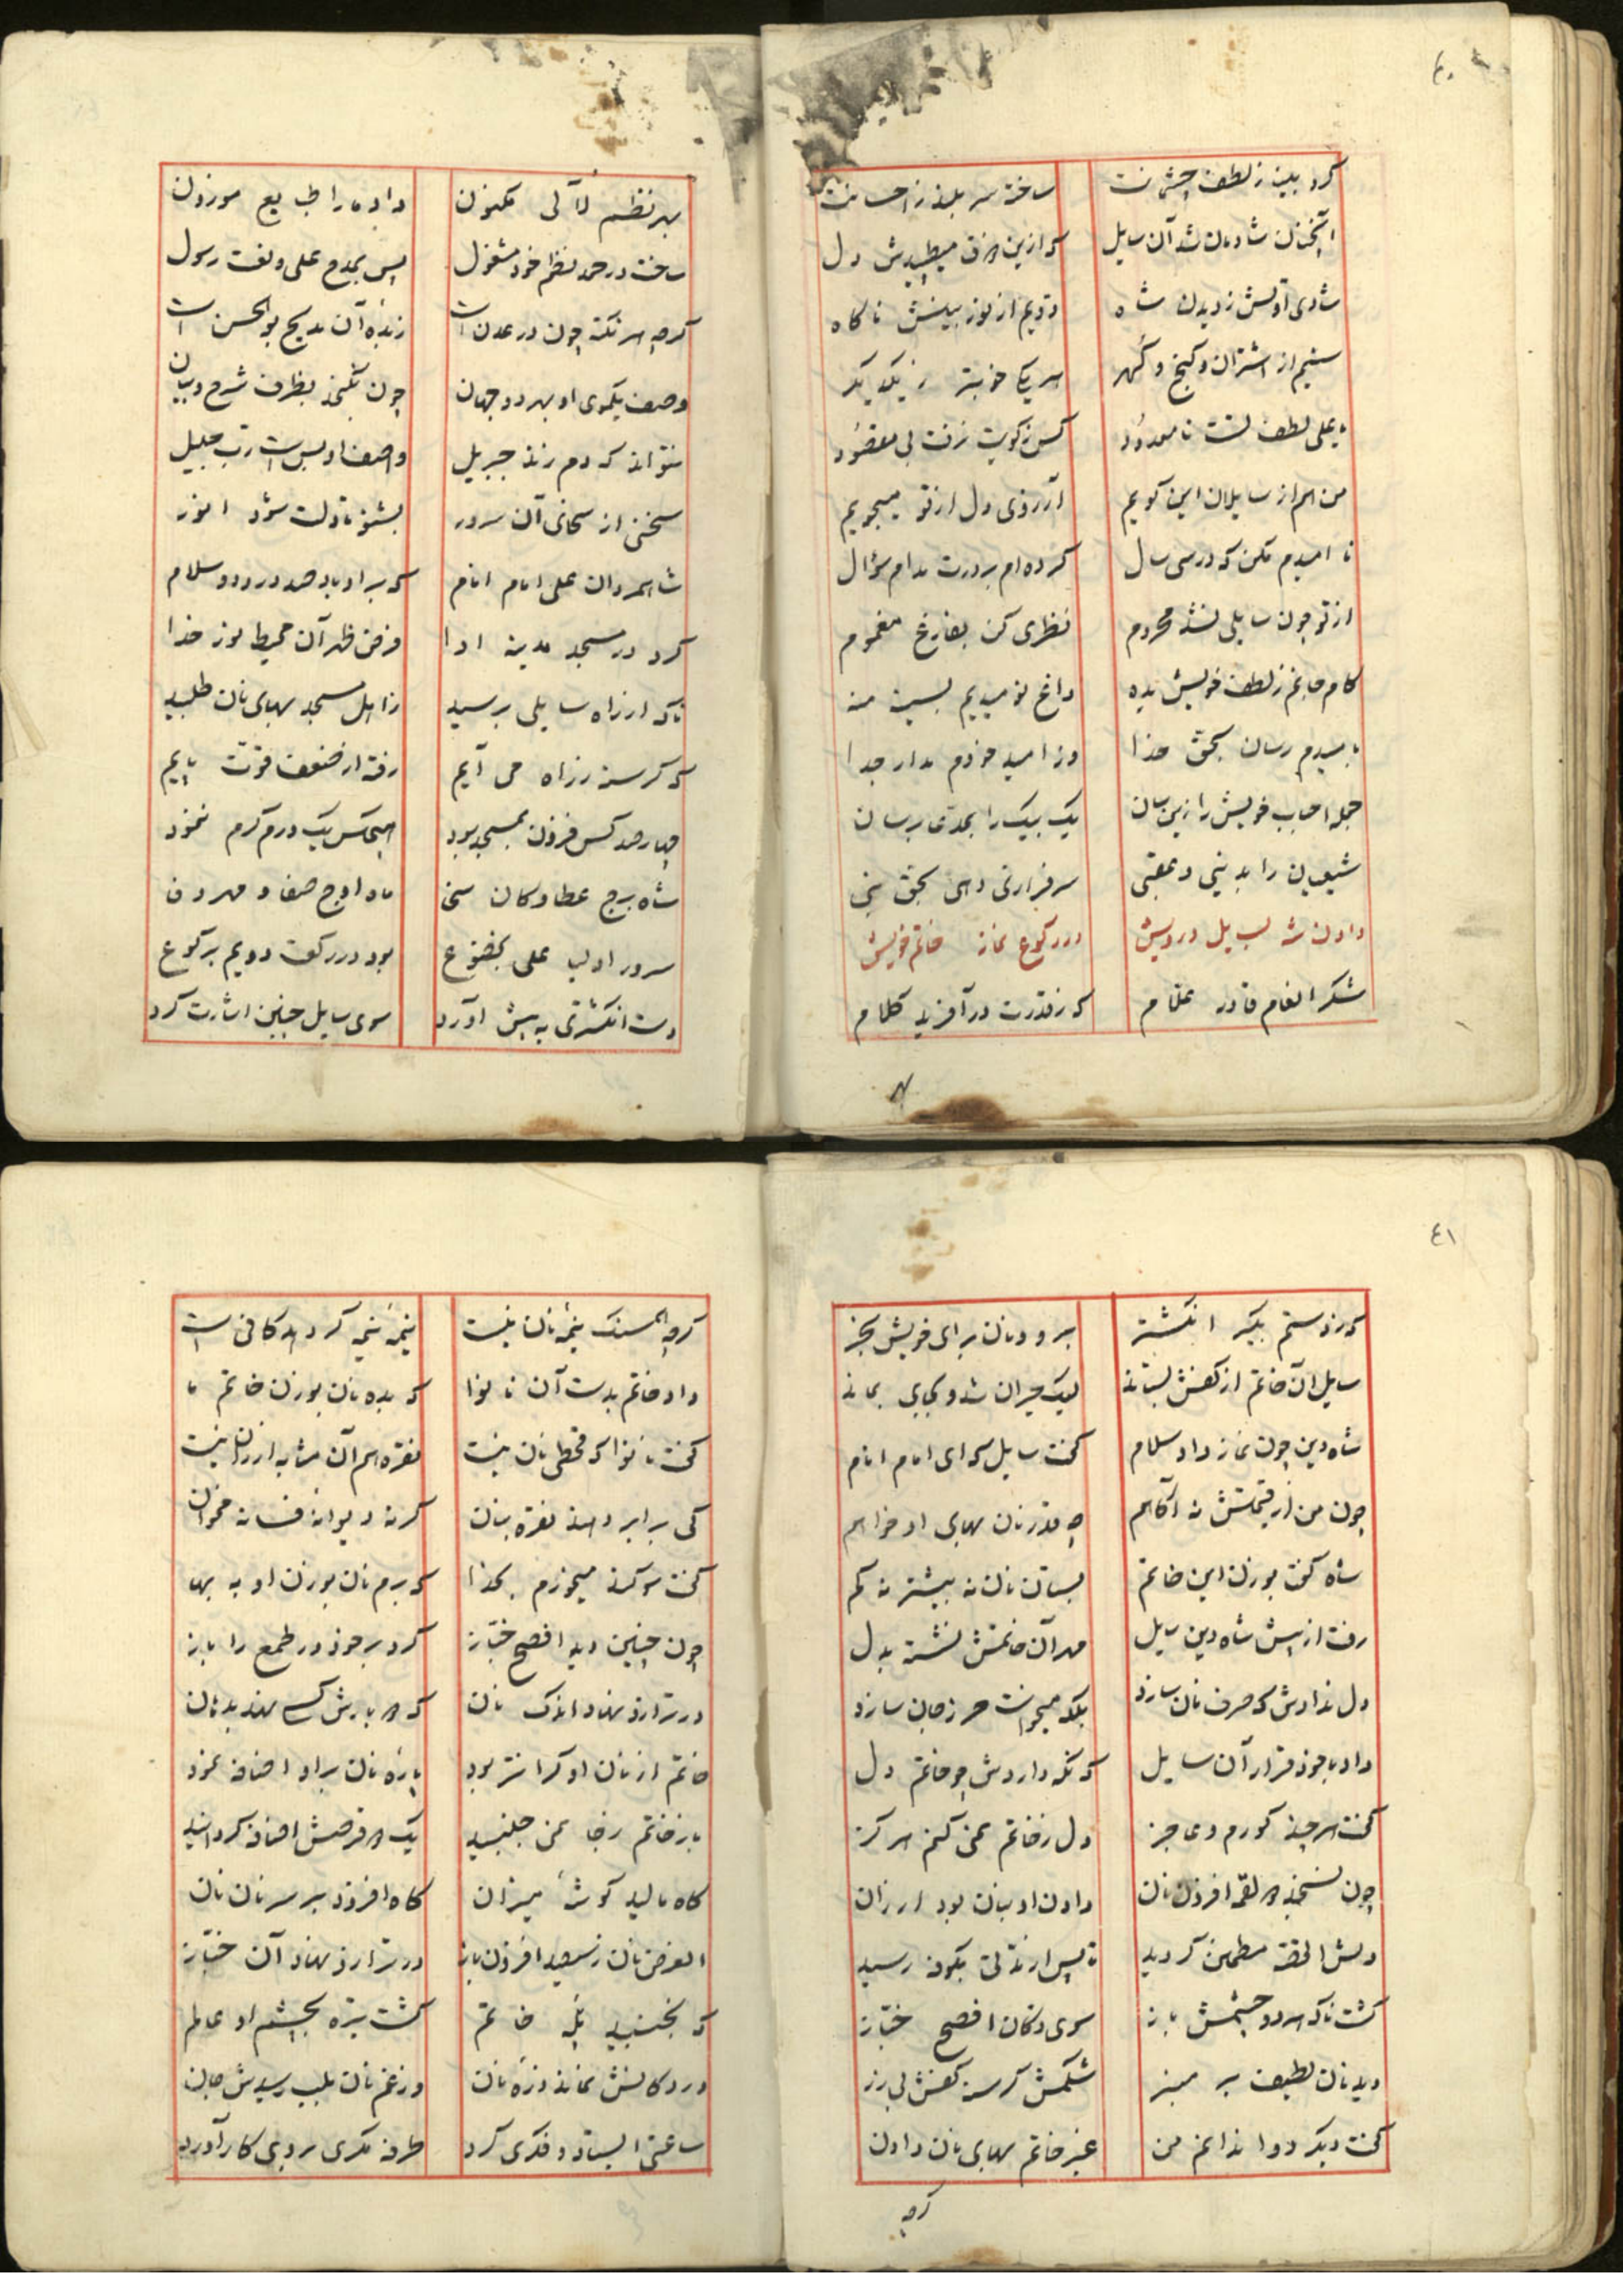 ۴۰
کرد بینا ز لطف چشمانت ساخت سر بلند ز احسانت
آنچنان شادمان شد آن سایل که ازین مژده میطپیدش دل
شادی اولش ز دیدن شاه دویم از نور بینش ناگاه
سیم از اشتران و گنج و گهر هر یکی خوبتر ز یکدیگر
یا علی لطف تست نا معدود کس ز کویت نرفت بی مقصود
من هم از سایلان این کویم آرزوی دل از تو میجویم
نا امیدم مکن که در سی سال کرده ام بر درت مدام سؤال
از تو چون سایلی نشد محروم نظری کن بفارغ مغموم
کام جانم ز لطف خویش بده داغ نومیدیم بسینه منه
بامیدم رسان بحق خدا وز امید خودم مدار جدا
جمله احباب خویش را زین سان یک بیک را بمدعا برسان
شیعیان را بدنیی و عقبی سرفرازی دهی بحق نبی
دادن شه بسایل درویش در رکوع نماز خاتم خویش
شکر انعام قادر علام که ز قدرت در آفرید کلام
بهر نظم لآلی مکنون داد ما را طبایع موزون
ساخت در حمد نظم خود مشغول پس بمدح علی و نعت رسول
گرچه هر نکته چون در عدن است زبده آن مدیح بوالحسن است
وصف یکموی او بهر دو جهان چون نگنجد بظرف شرح و بیان
نتواند که دم زند جبریل واصف او بس است رب جلیل
سخنی از سخای آن سرور بشنو تا دلت شود انور
شاه مردان علی امام انام که بر او باد صد درود و سلام
کرد در مسجد مدینه ادا فرض ظهر آن محیط نور خدا
ناگه از راه سایلی برسید ز اهل مسجد بهای نان طلبید
که گرسنه ز راه می آیم رفته از ضعف قوت پایم
چهار صد کس فزون بمسجد بود هیچکس یک درم کرم ننمود
شاه برج عطا و کان سخا ماه اوج صفا و مهر وفا
سرور اولیا علی بخضوع بود در رکعت دویم برکوع
دست انگشتری به پیش آورد سوی سایل چنین اشارت کرد
۴۱
که ز دستم بگیر انگشتر برو و نان برای خویش بخر
سایل آن خاتم از کفش بستاند لیک حیران شد و بجای بماند
شاه دین چون نماز داد سلام گفت سایل که ای امام انام
چون من از قیمتش نه آگاهم چه قدر نان بهای او خواهم
شاه گفت بوزن این خاتم بستان نان نه بیشتر نه کم
رفت از پیش شاه دین سایل مهر آن خاتمش نشسته بدل
دل ندادش که صرف نان سازد بلکه میخواست حرز جان سازد
داد با خود قرار آن سایل که نگه داردش چو خاتم دل
گفت هر چند کورم و عاجز دل ز خاتم نمی کنم هرگز
چون نسنجد لقمه افزون نان دادن او بنان بود ارزان
دلش القصه مطمئن گردید تا پس از مدتی بکوفه رسید
گشت ناگه هر دو چشمش باز سوی دکان افصح خباز
دید نان لطیف بر میز شکمش گرسنه کفش بی زر
گفت دیگر دوا ندانم من غیر خاتم بهای نان دادن
گرچه
گرچه همسنگ نیمه نان نیست نیمه نیمه گر دهد کافی است
داد خاتم بدست آن نانوا که بده نان بوزن خاتم ما
گفت نانوا که قحطی نان نیست نقره هم آن مثابه ارزان نیست
کی برابر دهند نقره بنان گر نه دیوانه فسانه مخوان
گفت سوگند میخورم بخدا که برم نان بوزن او به بها
چون چنین دید افصح خباز کرد بر خود در طمع را باز
در ترازو نهاد اندک نان
خاتم از نان او گرانتر بود پاره نان بر او اضافه نمود
باز خاتم ز جا نمی جنبید یک قرصش اضافه گردانید
گاه مالید گوشه میزان گاه افزود بر سر نان نان
الغرض نان رسید افزون باز در ترازو نهاد آن خباز
که نجنبید پله خاتم گشت تیره بچشم او عالم
در دکانش نماند ذره نان وز غم نان بلب رسیدش جان
ساعتی ایستاد و فکری کرد طرفه مکری بروی کار آورد